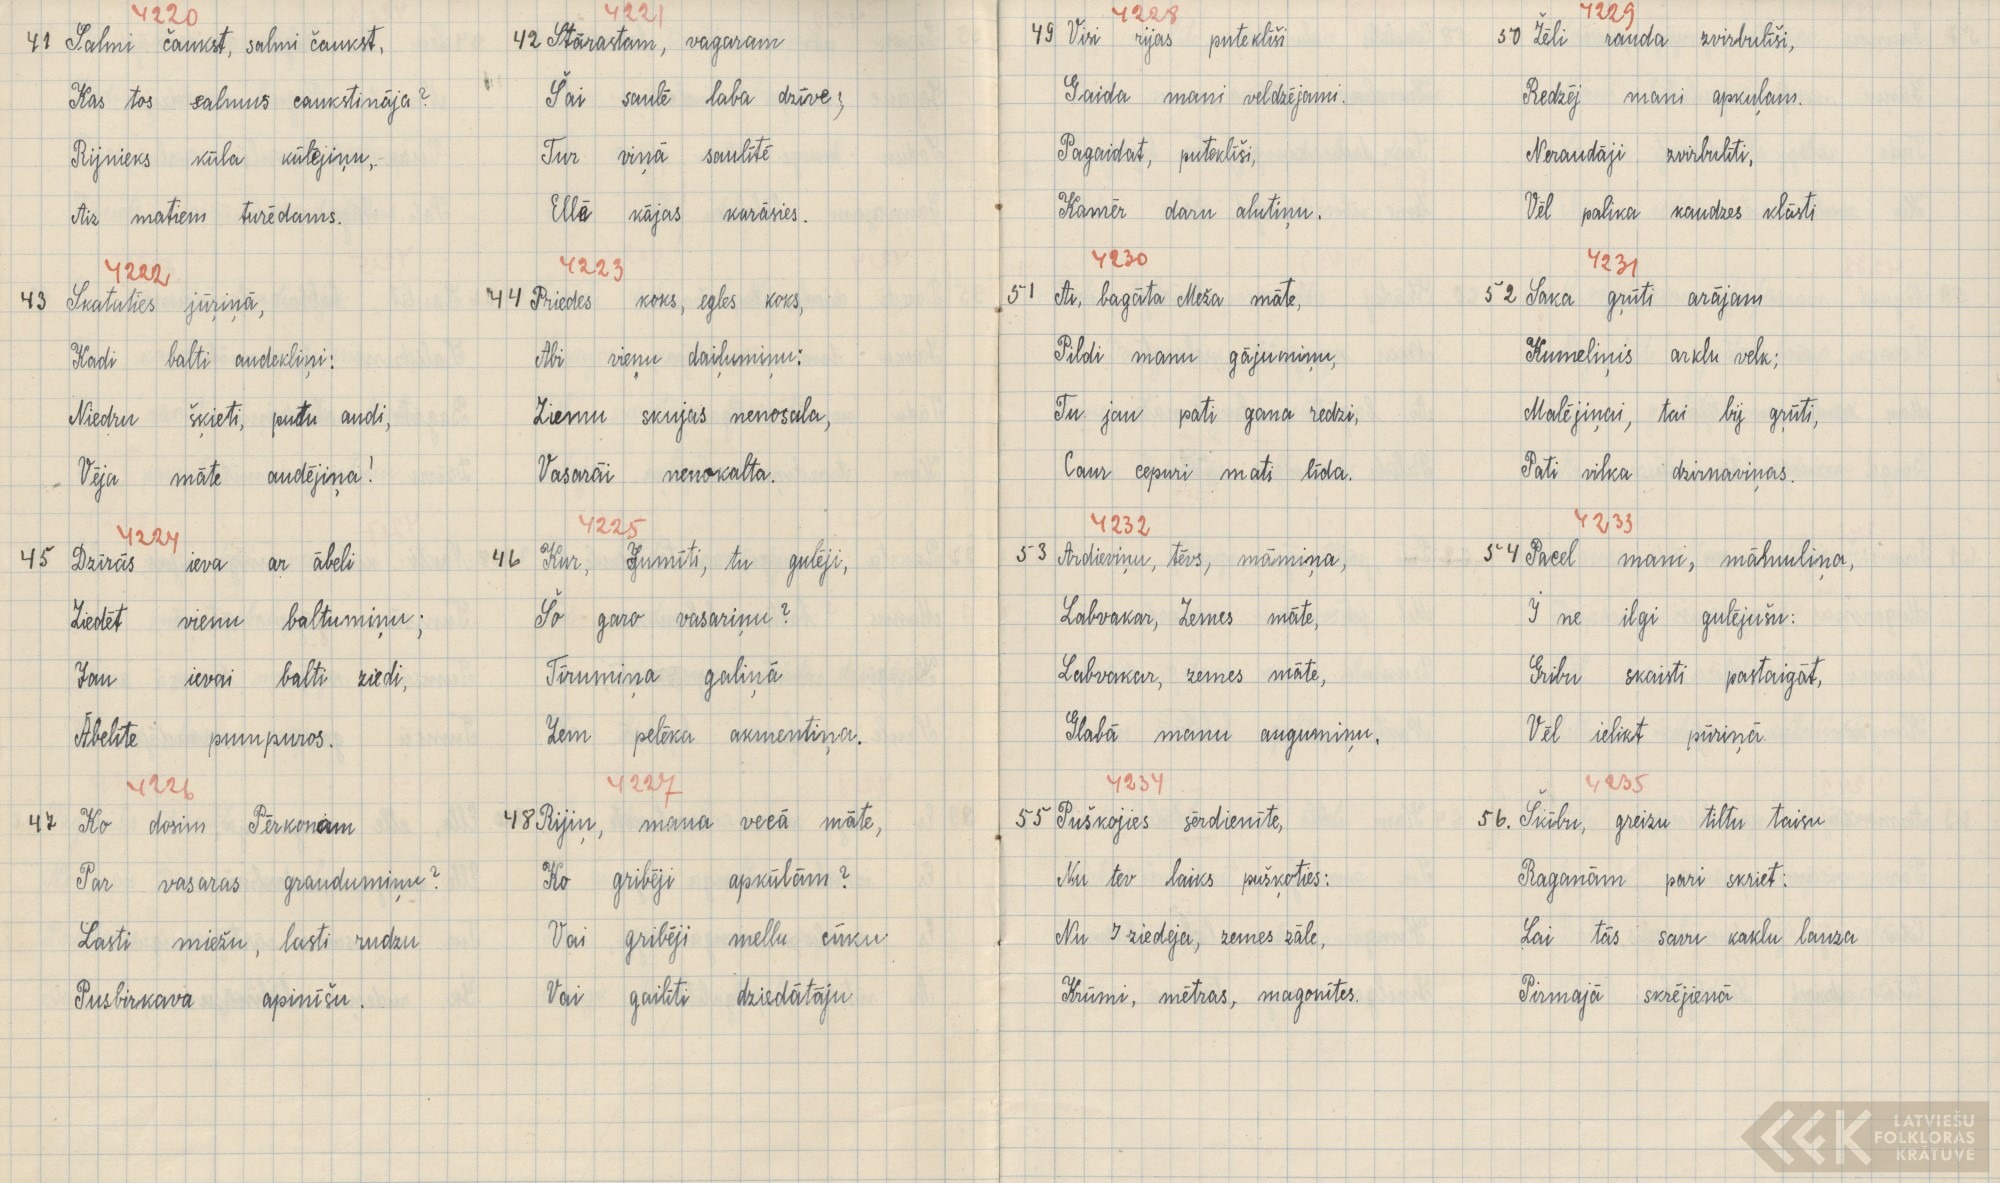 4220
41 Salmi čaukst, salmi čaukst,
Kas tos salmus caukstināja?
Rijnieks kūla kūlējiņu,
Aiz matiem turēdams.
4221
42 Stārastam, vagaram
Šai saulē laba dzīve;
Tur viņā saulītē
Ellē kājas karāsies.
4222
43 Skatuties jūŗiņā,
Kadi balti audekliņi:
Niedru šķieti, putu audi,
Vēja māte audējiņa!
4223
44 Priedes koks, egles koks,
Abi vieņu daiļumiņu:
Ziemu skujas nenosala,
Vasarāi nenokalta.
4224
45 Dzīrās ieva ar ābeli
Ziedēt vienu baltumiņu;
Jau ievai balti ziedi,
Ābelīte pumpuros.
4225
46 Kur, Jumīti, tu gulēji,
Šo garo vasariņu?
Tīrumiņa galiņā
Zem pelēka akmentiņa.
4226
47 Ko dosim Pērkonam
Par vasaras graudumiņu?
Lasti miežu, lasti rudzu
Pusbirkava apinīšu.
4227
48 Rijiņ, mana vecā māte,
Ko gribēji apkūlām?
Vai gribēji mellu cūku
Vai gailīti dziedātāju
4228
49 Visi rijas puteklīši
Gaida mani veldzējami.
Pagaidat, puteklīši,
Kamēr daru alutiņu.
4229
50 Žēli rauda zvirbulīši,
Redzēj mani apkuļam.
Neraudāji zvirbulīti,
Vēl palika kaudzes klāsti
4230
51 Ai, bagāta Meža māte,
Pildi manu gājumiņu,
Tu jau pati gana redzi,
Caur cepuri mati līda.
4231
52 Saka grūti arājam
Kumeliņis arklu velk;
Malējiņai, tai bij grūti,
Pati vilka dzirnaviņas.
4232
53 Ardieviņu, tēvs, māmiņa,
Labvakar, Zemes māte,
Labvakar, zemes māte,
Glabā manu augumiņu.
4233
54 Pacel mani, māmuliņa,
I ne ilgi gulējušu:
Gribu skaisti pastaigāt,
Vēl ielikt pūriņā
4234
55 Puškojies sērdienīte,
Nu tev laiks puškoties:
Nu I ziedēja, zemes zāle,
Krūmi, mētras, magonītes.
4235
56. Šķību, greizu tiltu taisu
Raganām pari skriet:
Lai tās savu kaklu lauza
Pirmajā skrējienā
LATVIEŠU
FOLKLORAS
KRĀTUVE